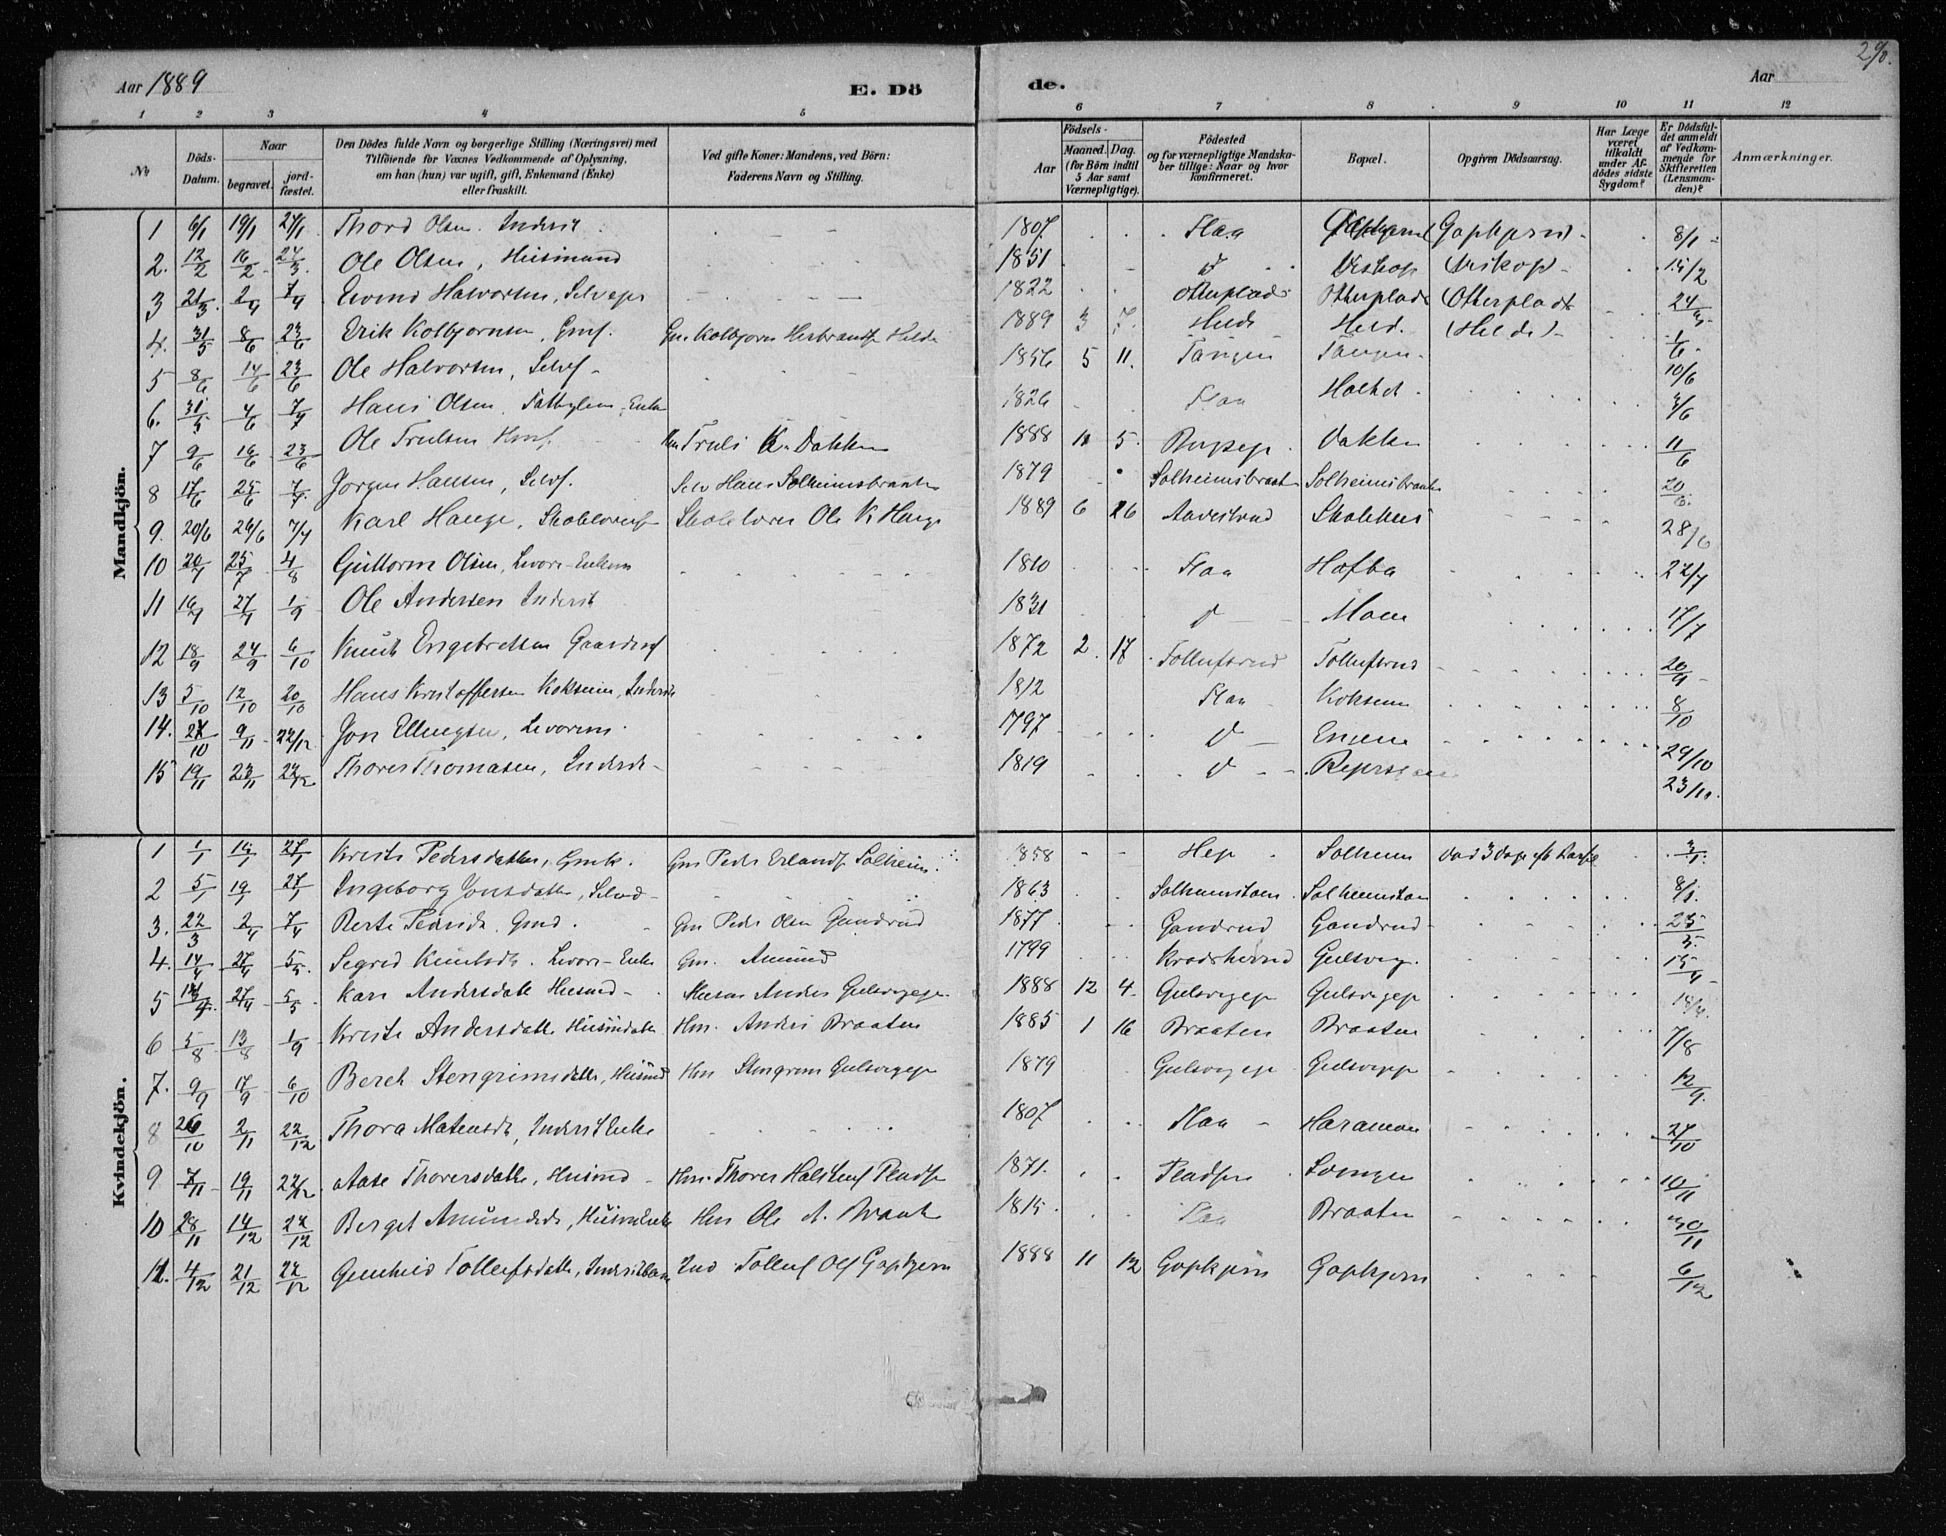 Aar 1889
E. Dö
de.
Aar
290.
1 2 3 4 5 6 7 8 9 10 11 12
No
Döds-Datum.
Naar
begravet.
jord-fæstet.
Den Dödes fulde Navn og borgerlige Stilling (Næringsvei) med
Tilföiende for Voxnes Vedkommende af Oplysning,
om han (hun) var ugift, gift, Enkemand (Enke)
eller fraskilt.
Ved gifte Koner: Mandens, ved Börn:
Faderens Navn og Stilling.
Födsels-
Aar
Maaned. Dag.
(for Börn indtil
5 Aar samt
Værnepligtige).
Födested
og for værnepligtige Mandska-
ber tillige: Naar og hvor
konfirmeret.
Bopæl.
Opgiven Dödsaarsag.
Har Læge
været
tilkaldt
under Af-
dödes sidste
Sygdom?
Er Dödsfal-
det anmeldt
af Vedkom-
mende for
Skifteretten
(Lensman-
den)?
Anmærkninger.
Mandkjön.
1 6/1 19/1 27/1 Thord Olsen. Inderst 1807 Flaa Gapkjern 8/1
2. 12/2 16/2 24/3 Ole Olsen, Husmand 1851 d Viskop 15/2
3 21/3 2/4 7/4 Eivind Halvorsen, Selveier 1822 Otterplads Otterplads (Otterplads 24/3
4. 31/5 8/6 23/6 Erik Kolbjørnsen, Gmf. Gm Kolbjørn Herbrandsen Helde 1889 3 7. Helde Held. (Helde) 1/6
5 8/6 14/6 23/6 Ole Halvorsen, Selvf 1856 5 11. Tangen Tangen 10/6
6. 31/5 4/6 7/7 Hans Olsen 1826 Flaa 3/6
7 9/6 16/6 23/6 Ole Trulsen Hmf. Hm Truls K. Dokken 1888 11 5. Dokken 11/6
8 17/6 25/6 7/7. Jørgen Hansen, Selvf. Selv Hans Solheimsbraaten 1879 Solheimsbraat Solheimsbraaten 20/6
9. 20/6 26/6 7/7 Karl Hauge, Skolelærer Ole K Hauge 1889 6 26 Aavestrud Skolehus 28/6
10 20/7 25/7 4/8 Guttorm Olsen, 1810 Flaa Hofba 22/7
11 16/7 27/7 1/9 Ole Andersen Inderst 1831 d Moen 17/7
12 18/9 24/9 6/10 Knut Engebretsen Gaardmf 1872 2 17 Tollefsrud Tollefsrud 20/9
13 5/10 12/10 20/10 Hans Kristoffersen Kokseim, Inderst 1812 Flaa Kokseim 8/10
14. 27/10 9/11 22/12 Jon Ellingsen, 1797 d Engene 29/10
15 19/11 23/11 22/12 Thore Thomasen, Inderst 1819 d 23/11.
Kvindekjön.
1 1/1 19/1 27/1 Kristi Pedersdatter, Gmk. Gm Peder Erlandsen Solheim 1858 Solheim 3/1
2 5/1 19/1 27/1 Ingeborg Jonsdatter, Selvd 1863 Solheimstoen Solheimstoen 8/1
3. 22/3 2/4 7/4 Berte Pedersdt. Gmd. Gm Peder Olsen Gandrud 1877 Gandrud Gandrud 25/3
4. 14/4 27/4 5/5. Sigrid Knutsdt. Gm. Amund 1799 Kradsherred Gulsvig. 15/4
5 27/4 5/5 Kari Andersdatter Husmd Husm Anders Gulsvigeie 1888 12 4. Gulsvigeie Gulsvigeie
6 5/8 13/8 1/9 Kristi Andersdatter Husmdatter Hm. Anders Braaten 1885 1 16 Braaten Braaten 7/8
7. 9/9 17/9 6/10 Beret Stengrimsdatter, Husmd Hm Stengrim Gulsvigeie 1879 Gulsvigeie Gulsvigeie 12/9.
8 26/10 2/11 22/12 Thora Matisdt, Inderst Enke 1807 Flaa Haramoen 27/10
9 7/11 19/11 22/12 Aase Thorersdatter, Husmd Hm. Thore 1871. 10/11
10 28/11 14/12 22/12 Berget Amundsdt, Husm Enke Hm Ole A. Braaten 1815 Flaa Braaten 30/11
11. 4/12 21/12 22/12 Gunhild Tollefsdatter, Ind Tollef Ols Gapkjern 1888 11 12 Gapkjern Gapkjern 6/12